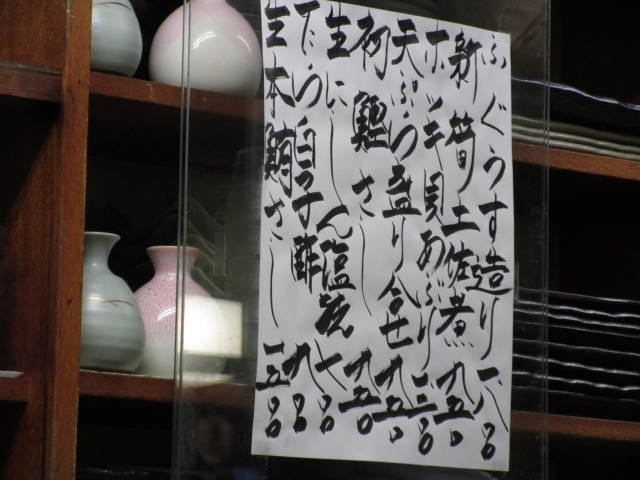 ふぐうす造り 一八〇〇
新筍土佐煮 九五〇
ホッキ貝あぶり 一二〇〇
天ぷら盛り合せ 九五〇
初鰹さし 九五〇
生にしん塩焼 七〇〇
たら白子酢 九〇〇
生本鮪さし 一五〇〇